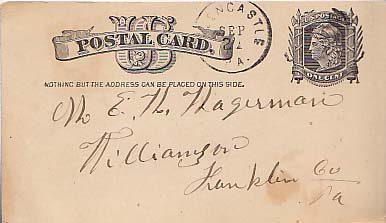 US
POSTAL CARD.
NCASTLE
SEP
A.
U.S. POSTAGE
ONE CENT
NOTHING BUT THE ADDRESS CAN BE PLACED ON THIS SIDE.
Mr E. K. Hagerman
Williamson
Franklin Co
Pa